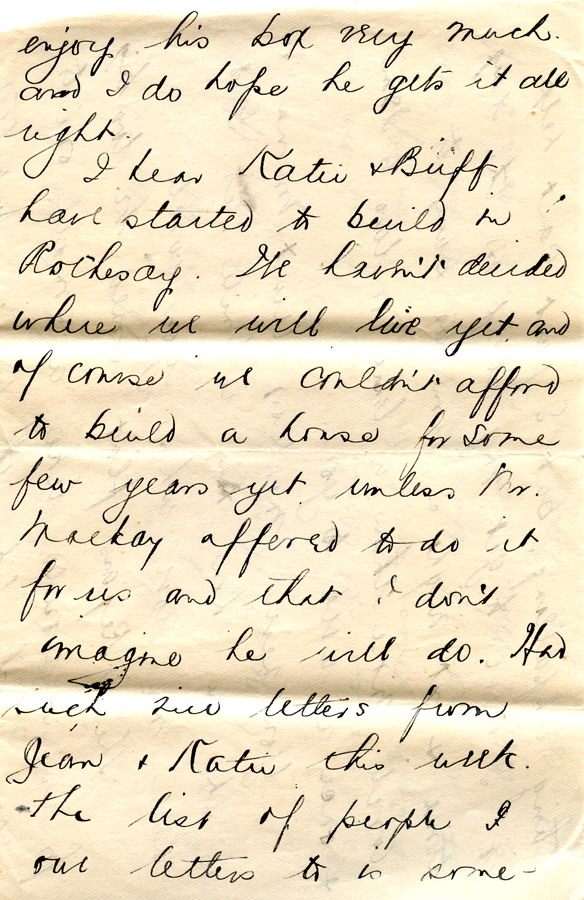 enjoy his box very much.
and I do hope he gets it all
right.
I hear Katie & Buff
have started to build in
Rothesay. We havn't decided
where we will live yet, and
of course we couldn't afford
to build a house for some
few years yet unless Mr.
Mackay offered to do it
for us and that I don't
imagine he will do. Had
such nice letters from
Jean & Katie this week.
The list of people I
owe letters to is some-